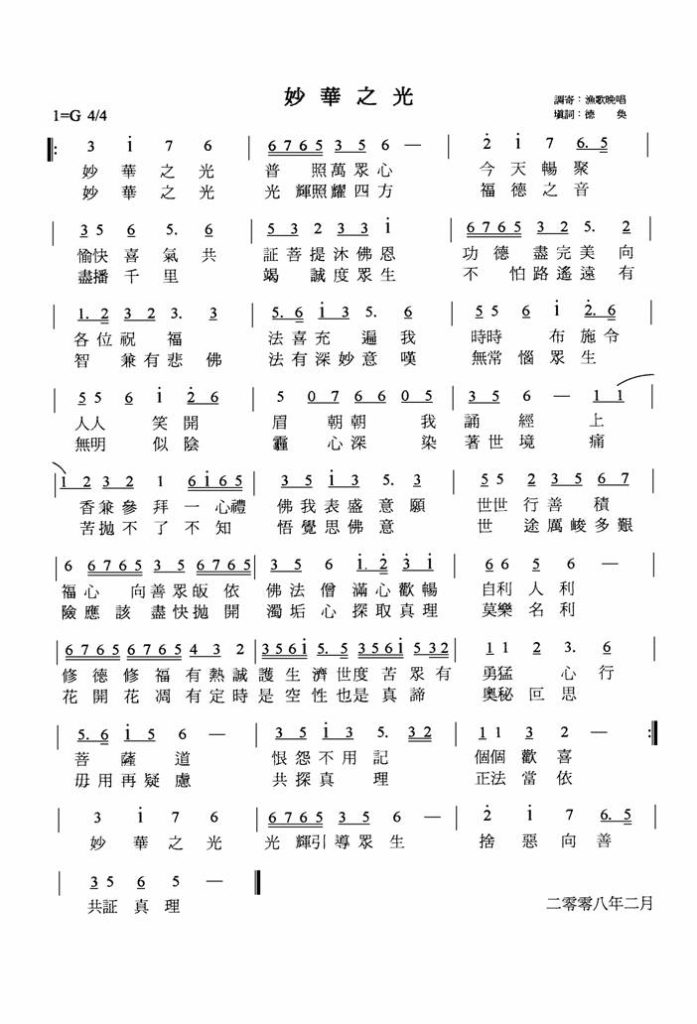 妙華之光
調寄：漁歌晚唱
1=G 4/4
填詞：德 奐
3 i 7 6 | 6765 35 6 — | 2 i 7 6. 5
妙 華 之 光 普 照萬眾心 今 天 暢聚
妙 華 之 光 光 輝照耀四方 福 德 之 音
35 6 5. 6 | 53 2233 i | 6765 32 5. 2
愉快 喜 氣 共 証菩提沐佛恩 功 德 盡完美向
盡播 千 里 竭 誠度眾生 不 怕路遙遠有
1. 2 32 3. 3 | 5. 6 i3 5. 6 | 55 6 i 2. 6
各位祝 福 法喜充 遍我 時時 布施令
智 兼有悲佛 法有深妙意嘆 無常 惱 眾生
55 6 i 26 | 5 076 605 | 35 6 — 11
人人 笑 開 眉 朝朝 我 誦 經 上
無明 似 陰 霾 心深 染 著世 境 痛
1 232 1 6i65 | 35 i3 5. 6 | 55 2 35 67
香兼參 拜 一心禮 佛我表盛意願 世世 行善 積
苦拋不 了 不 知 悟覺思佛意 世 途厲峻多艱
6 6765 35 6765 | 35 6 i. 2 3i | 66 5 6 —
福心 向善眾皈依 佛法 僧 滿心歡暢 自利 人 利
險應該 盡快拋開 濁垢 心 探取真理 莫樂 名 利
6765 6765 43 2 | 356i 5. 5 356i 532 | 11 2 3. 6
修 德 修 福 有熱誠 護生濟世度苦眾有 勇猛 心 行
花 開 花 凋 有定時 是空性也是真諦 奧秘 回 思
5. 6 i5 6 — | 35 i3 5. 32 | 11 3 2 —
菩 薩 道 恨怨不用記 個個 歡 喜
毋用再疑慮 共探真 理 正法 當 依
3 i 7 6 | 6765 35 6 — | 2 i 7 6. 5
妙 華 之 光 光 輝引導眾生 捨 惡 向 善
35 6 5 —
共証 真 理
二零零八年二月